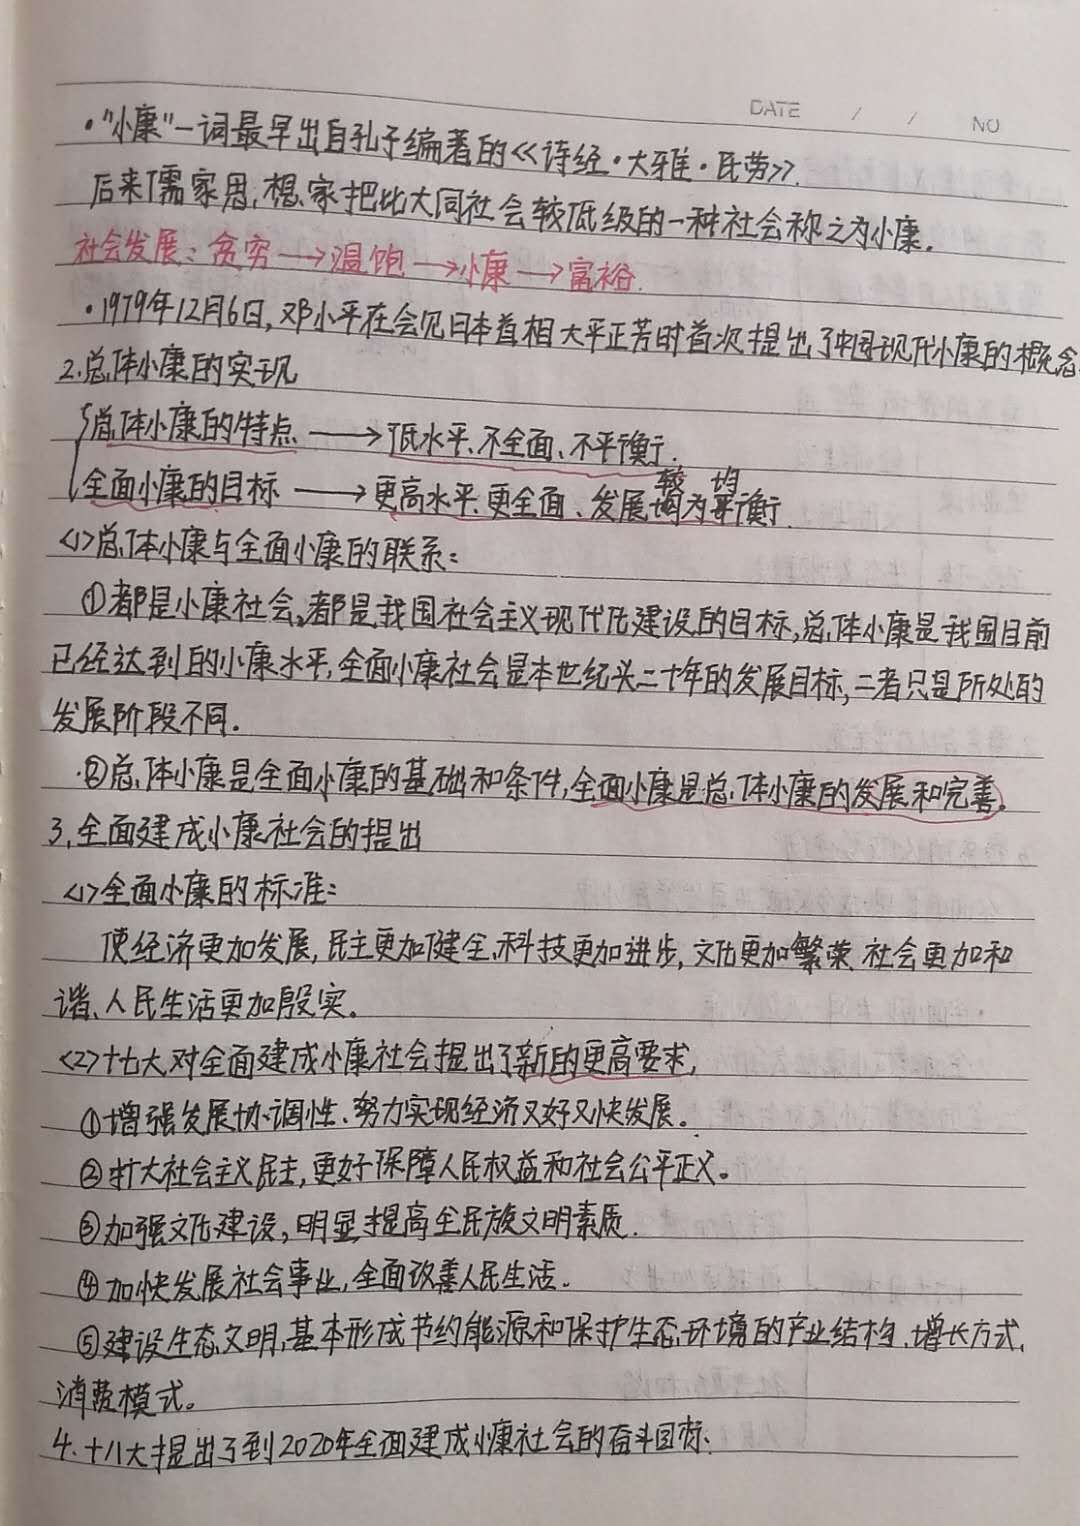 DATE / / NO
·"小康"一词最早出自孔子编著的《诗经·大雅·民劳》.
后来儒家思想家把比大同社会较低级的一种社会称之为小康.
社会发展:贫穷→温饱→小康→富裕.
·1979年12月6日,邓小平在会见日本首相大平正芳时首次提出了中国现代小康的概念.
2.总体小康的实现
总体小康的特点→低水平、不全面、不平衡.
全面小康的目标→更高水平、更全面、发展较为均衡.
<1>总体小康与全面小康的联系:
①都是小康社会,都是我国社会主义现代化建设的目标,总体小康是我国目前
已经达到的小康水平,全面小康社会是本世纪头二十年的发展目标,二者只是所处的
发展阶段不同.
②总体小康是全面小康的基础和条件,全面小康是总体小康的发展和完善.
3,全面建成小康社会的提出
<1>全面小康的标准:
使经济更加发展,民主更加健全,科技更加进步,文化更加繁荣、社会更加和
谐、人民生活更加殷实。
<2>十七大对全面建成小康社会提出了新的更高要求,
①增强发展协调性、努力实现经济又好又快发展。
②扩大社会主义民主,更好保障人民权益和社会公平正义。
③加强文化建设,明显提高全民族文明素质.
④加快发展社会事业,全面改善人民生活.
⑤建设生态文明,基本形成节约能源和保护生态环境的产业结构、增长方式、
消费模式。
4.十八大提出了到2020年全面建成小康社会的奋斗目标: